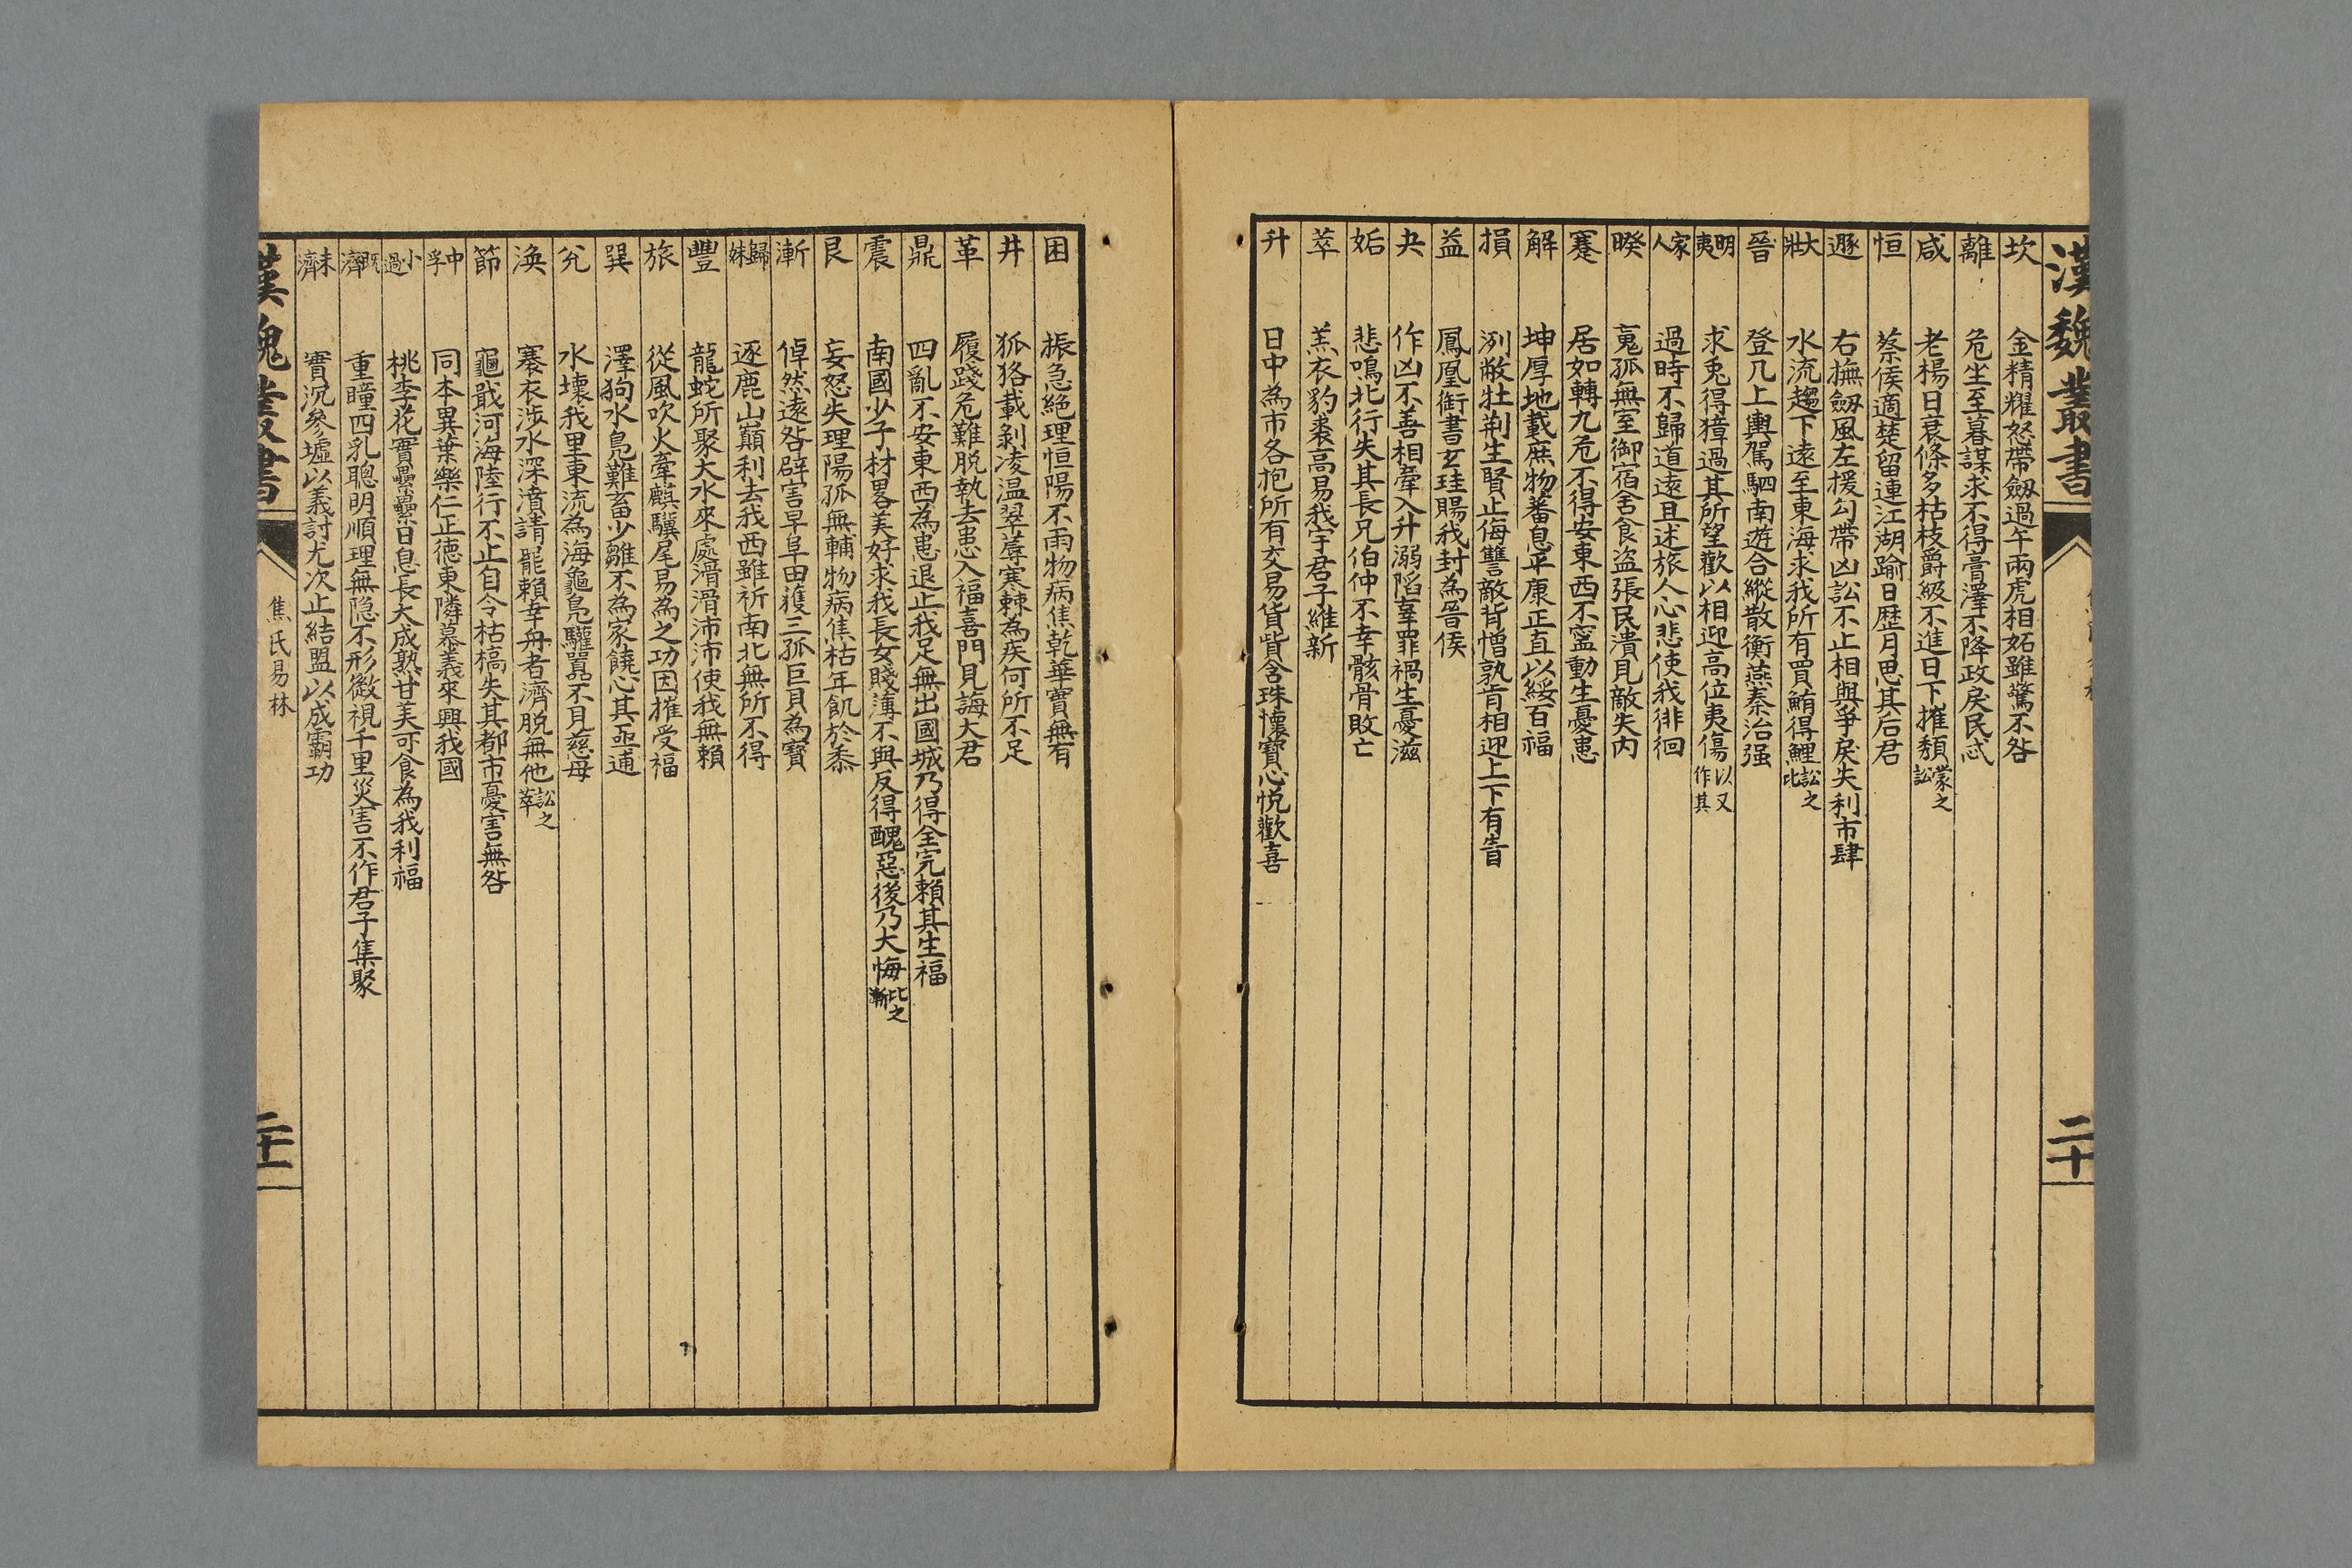 漢魏叢書
二十
坎 金精耀怒帶劔過午兩虎相妬雖驚不咎
離 危坐至暮謀求不得膏澤不降政戾民忒
咸 老楊日衰條多枯枝爵級不進日下摧頹 蒙之訟
恒 蔡侯適楚留連江湖踰日歷月思其后君
遯 右撫劔風左援勾帶凶訟不止相與爭戾失利市肆
大壯 水流趨下遠至東海求我所有買鮪得鯉 訟之比
晉 登几上輿駕駟南遊合縱散衡燕秦治强
明夷 求兎得獐過其所望歡以相迎高位夷傷 以又作其
家人 過時不歸道遠且迷旅人心悲使我徘徊
睽 鳬孤無室御宿舍食盜張民潰見敵失内
蹇 居如轉丸危不得安東西不寧動生憂患
解 坤厚地載庶物蕃息平康正直以綏百福
損 洌敝牡荆生賢止侮讐敵背憎孰肯相迎上下有眚
益 鳳凰銜書玄珪賜我封為晉侯
夬 作凶不善相牽入升溺陷辜罪禍生憂滋
姤 悲鳴北行失其長兄伯仲不幸骸骨敗亡
萃 羔衣豹裘高易我宇君子維新
升 日中為市各抱所有交易貨貲含珠懷寶心悅歡喜
困 振急絕理恒陽不雨物病焦乾華實無有
井 狐狢載剝凌溫翠蓐寒棘為疾何所不足
革 履踐危難脫執去患入福喜門見誨大君
鼎 四亂不安東西為患退止我足無出國城乃得全完賴其生福
震 南國少子材畧美好求我長女賤薄不與反得醜惡後乃大悔 比之漸
艮 妄怒失理陽孤無輔物病焦枯年飢於黍
漸 倬然遠咎辟害早阜田獲三孤巨貝為寶
歸妹 逐鹿山巔利去我西雖祈南北無所不得
豐 龍蛇所聚大水來處滑滑沛沛使我無賴
旅 從風吹火牽麒驥尾易為之功因摧受福
巽 澤狗水鳬難畜少雛不為家饒心其亟逋
兌 水壞我里東流為海龜鳬驩嚣不見慈母
渙 褰衣涉水深漬請罷賴幸舟者濟脫無他 訟之萃
節 龜戢河海陸行不止自令枯槁失其都市憂害無咎
中孚 同本異葉樂仁正德東隣慕義來興我國
小過 桃李花實纍纍日息長大成熟甘美可食為我利福
既濟 重瞳四乳聰明順理無隐不形微視千里災害不作君子集聚
未濟 實沉參墟以義討尤次止結盟以成霸功
漢魏叢書
焦氏易林
二十一